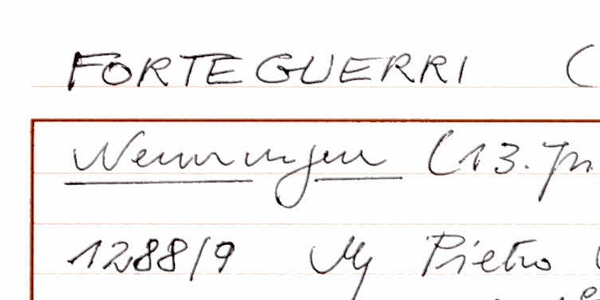 FORTEGUERRI (
Nennungen (13. Jh
1288/9 Mg Pietro